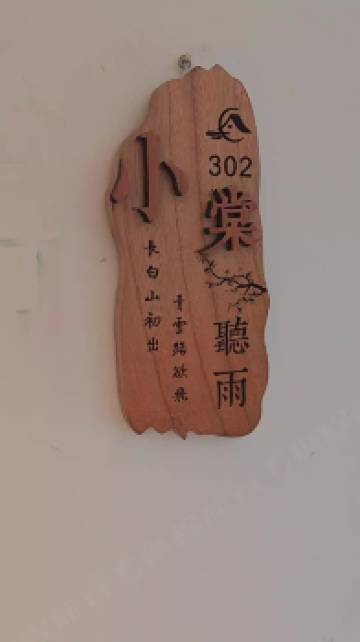 302
小棠
聽雨
長白山初出
青雲路欲飛